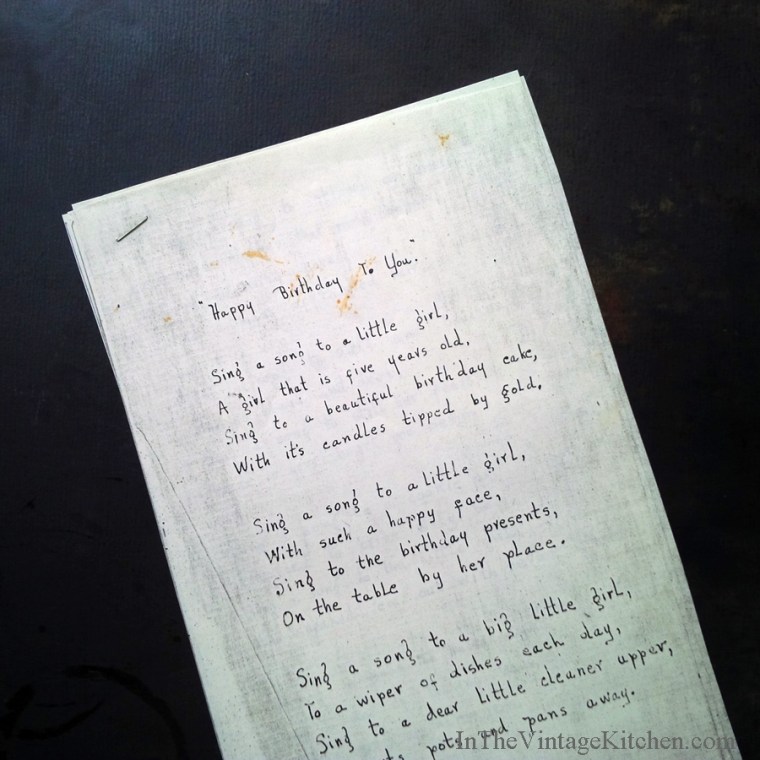 "Happy Birthday To You."
Sing a song to a little girl,
A girl that is five years old,
Sing to a beautiful birthday cake,
With it's candles tipped by gold.
Sing a song to a little girl,
With such a happy face,
Sing to the birthday presents,
On the table by her place.
Sing a song to a big little girl,
To a wiper of dishes each day,
Sing to a dear little cleaner upper,
pots and pans away.
InTheVintageKitchen.com